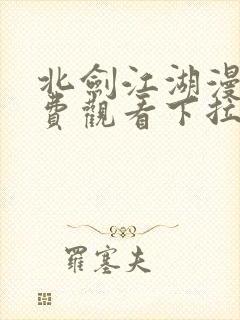 北劍江湖漫
費觀看下拉
羅塞夫